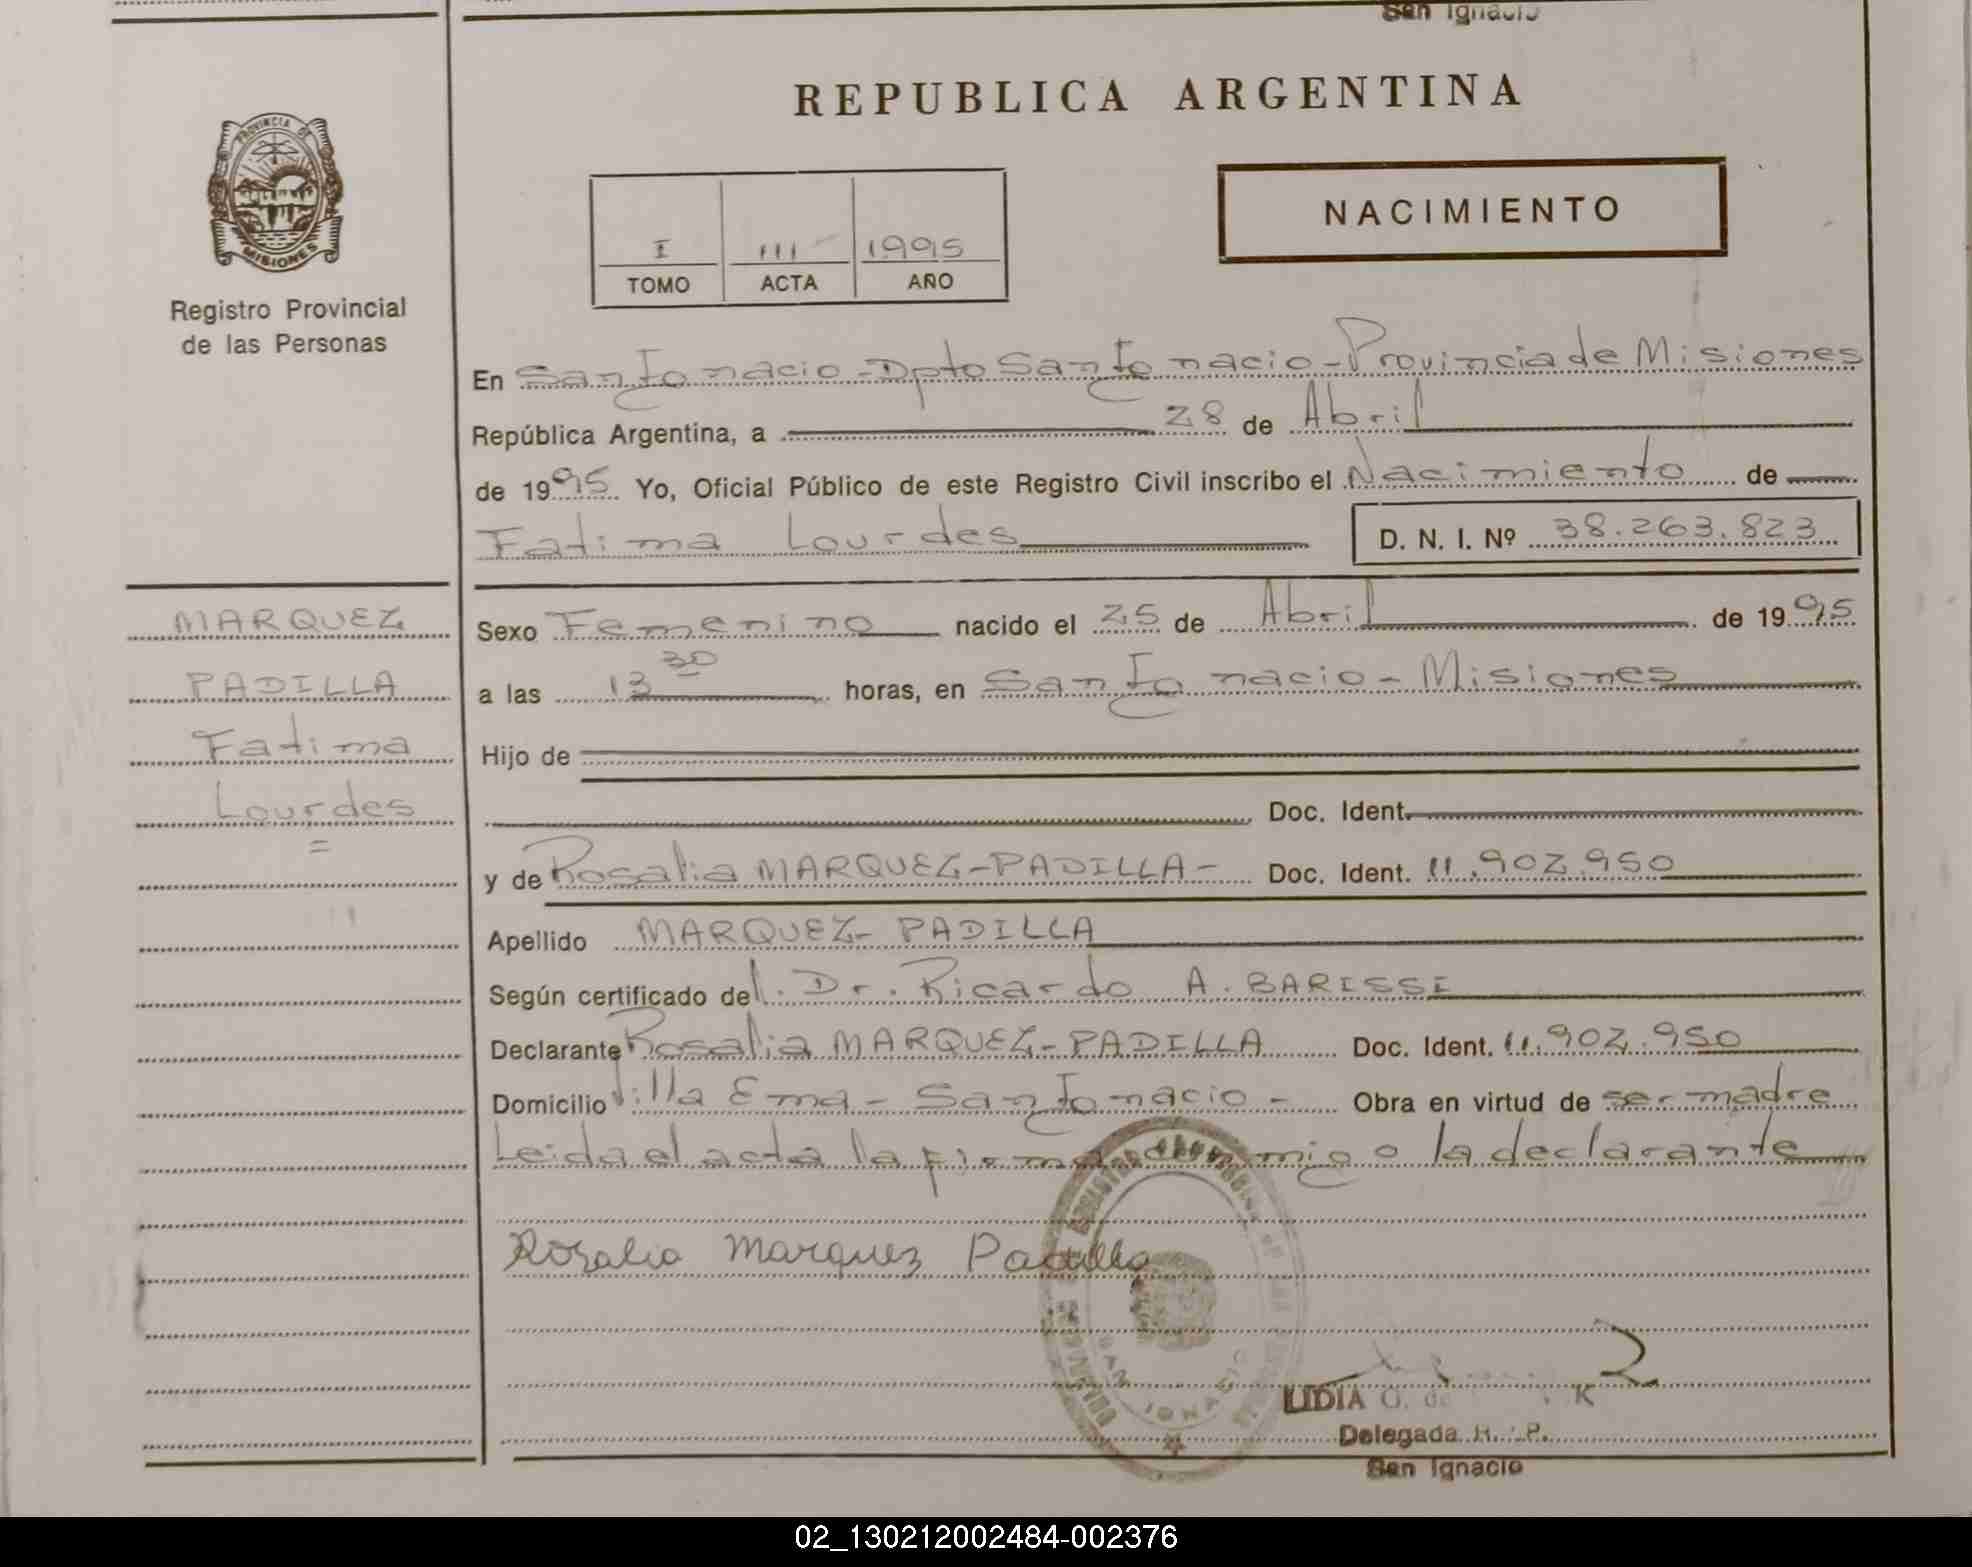 San Ignacio
REPUBLICA ARGENTINA
PROVINCIA DE
MISIONES
Registro Provincial
de las Personas
NACIMIENTO
I 111 1995
TOMO ACTA AÑO
En San Ignacio - Dpto San Ignacio - Provincia de Misiones
República Argentina, a 28 de Abril
de 1995 Yo, Oficial Público de este Registro Civil inscribo el Nacimiento de
Fatima Lourdes D. N. I. Nº 38.263.823
MARQUEZ
PADILLA
Fatima
Lourdes
=
Sexo Femenino nacido el 25 de Abril de 1995
a las 13 30 horas, en San Ignacio - Misiones
Hijo de
Doc. Ident.
y de Rosalia MARQUEZ-PADILLA- Doc. Ident. 11.902.950
Apellido MARQUEZ- PADILLA
Según certificado del. Dr. Ricardo A. BARISSI
Declarante Rosalia MARQUEZ-PADILLA Doc. Ident. 11.902.950
Domicilio Villa Ema - San Ignacio - Obra en virtud de ser madre
Leida el acta la firma conmigo la declarante
Rozalia Marquez Padilla
SAN IGNACIO
LIDIA G. de K
Delegada R. P.
San Ignacio
02_130212002484-002376